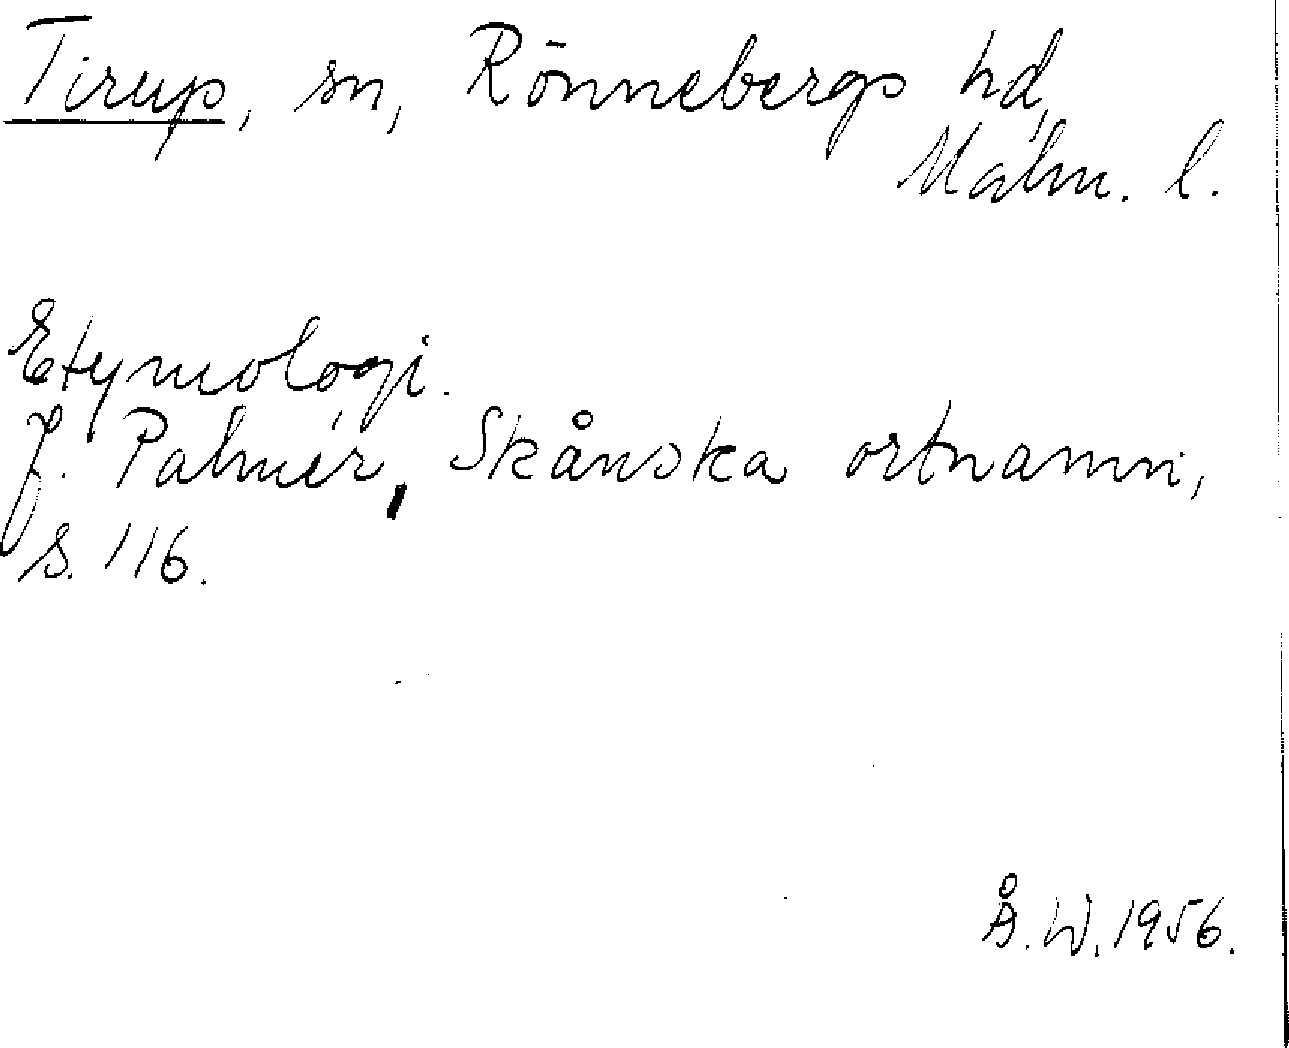 Tirup, sn, Rönnebergs hd,
Malm. l.
Etymologi.
J. Palmér, Skånska ortnamn,
s. 116.
Å. W. 1956.